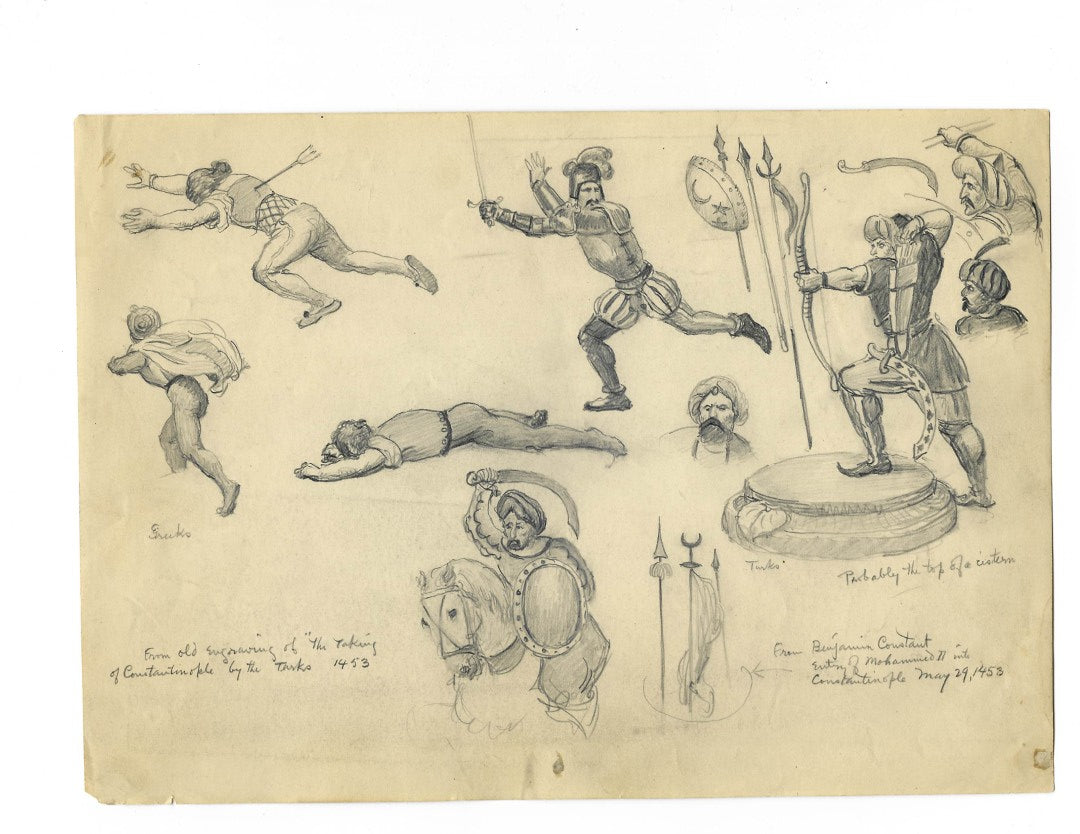 Greeks
Turks
Probably the top of a cistern
From old engraving of "The Taking
of Constantinople" by the Turks 1453
From Benjamin Constant
Entry of Mohammed II into
Constantinople May 29, 1453